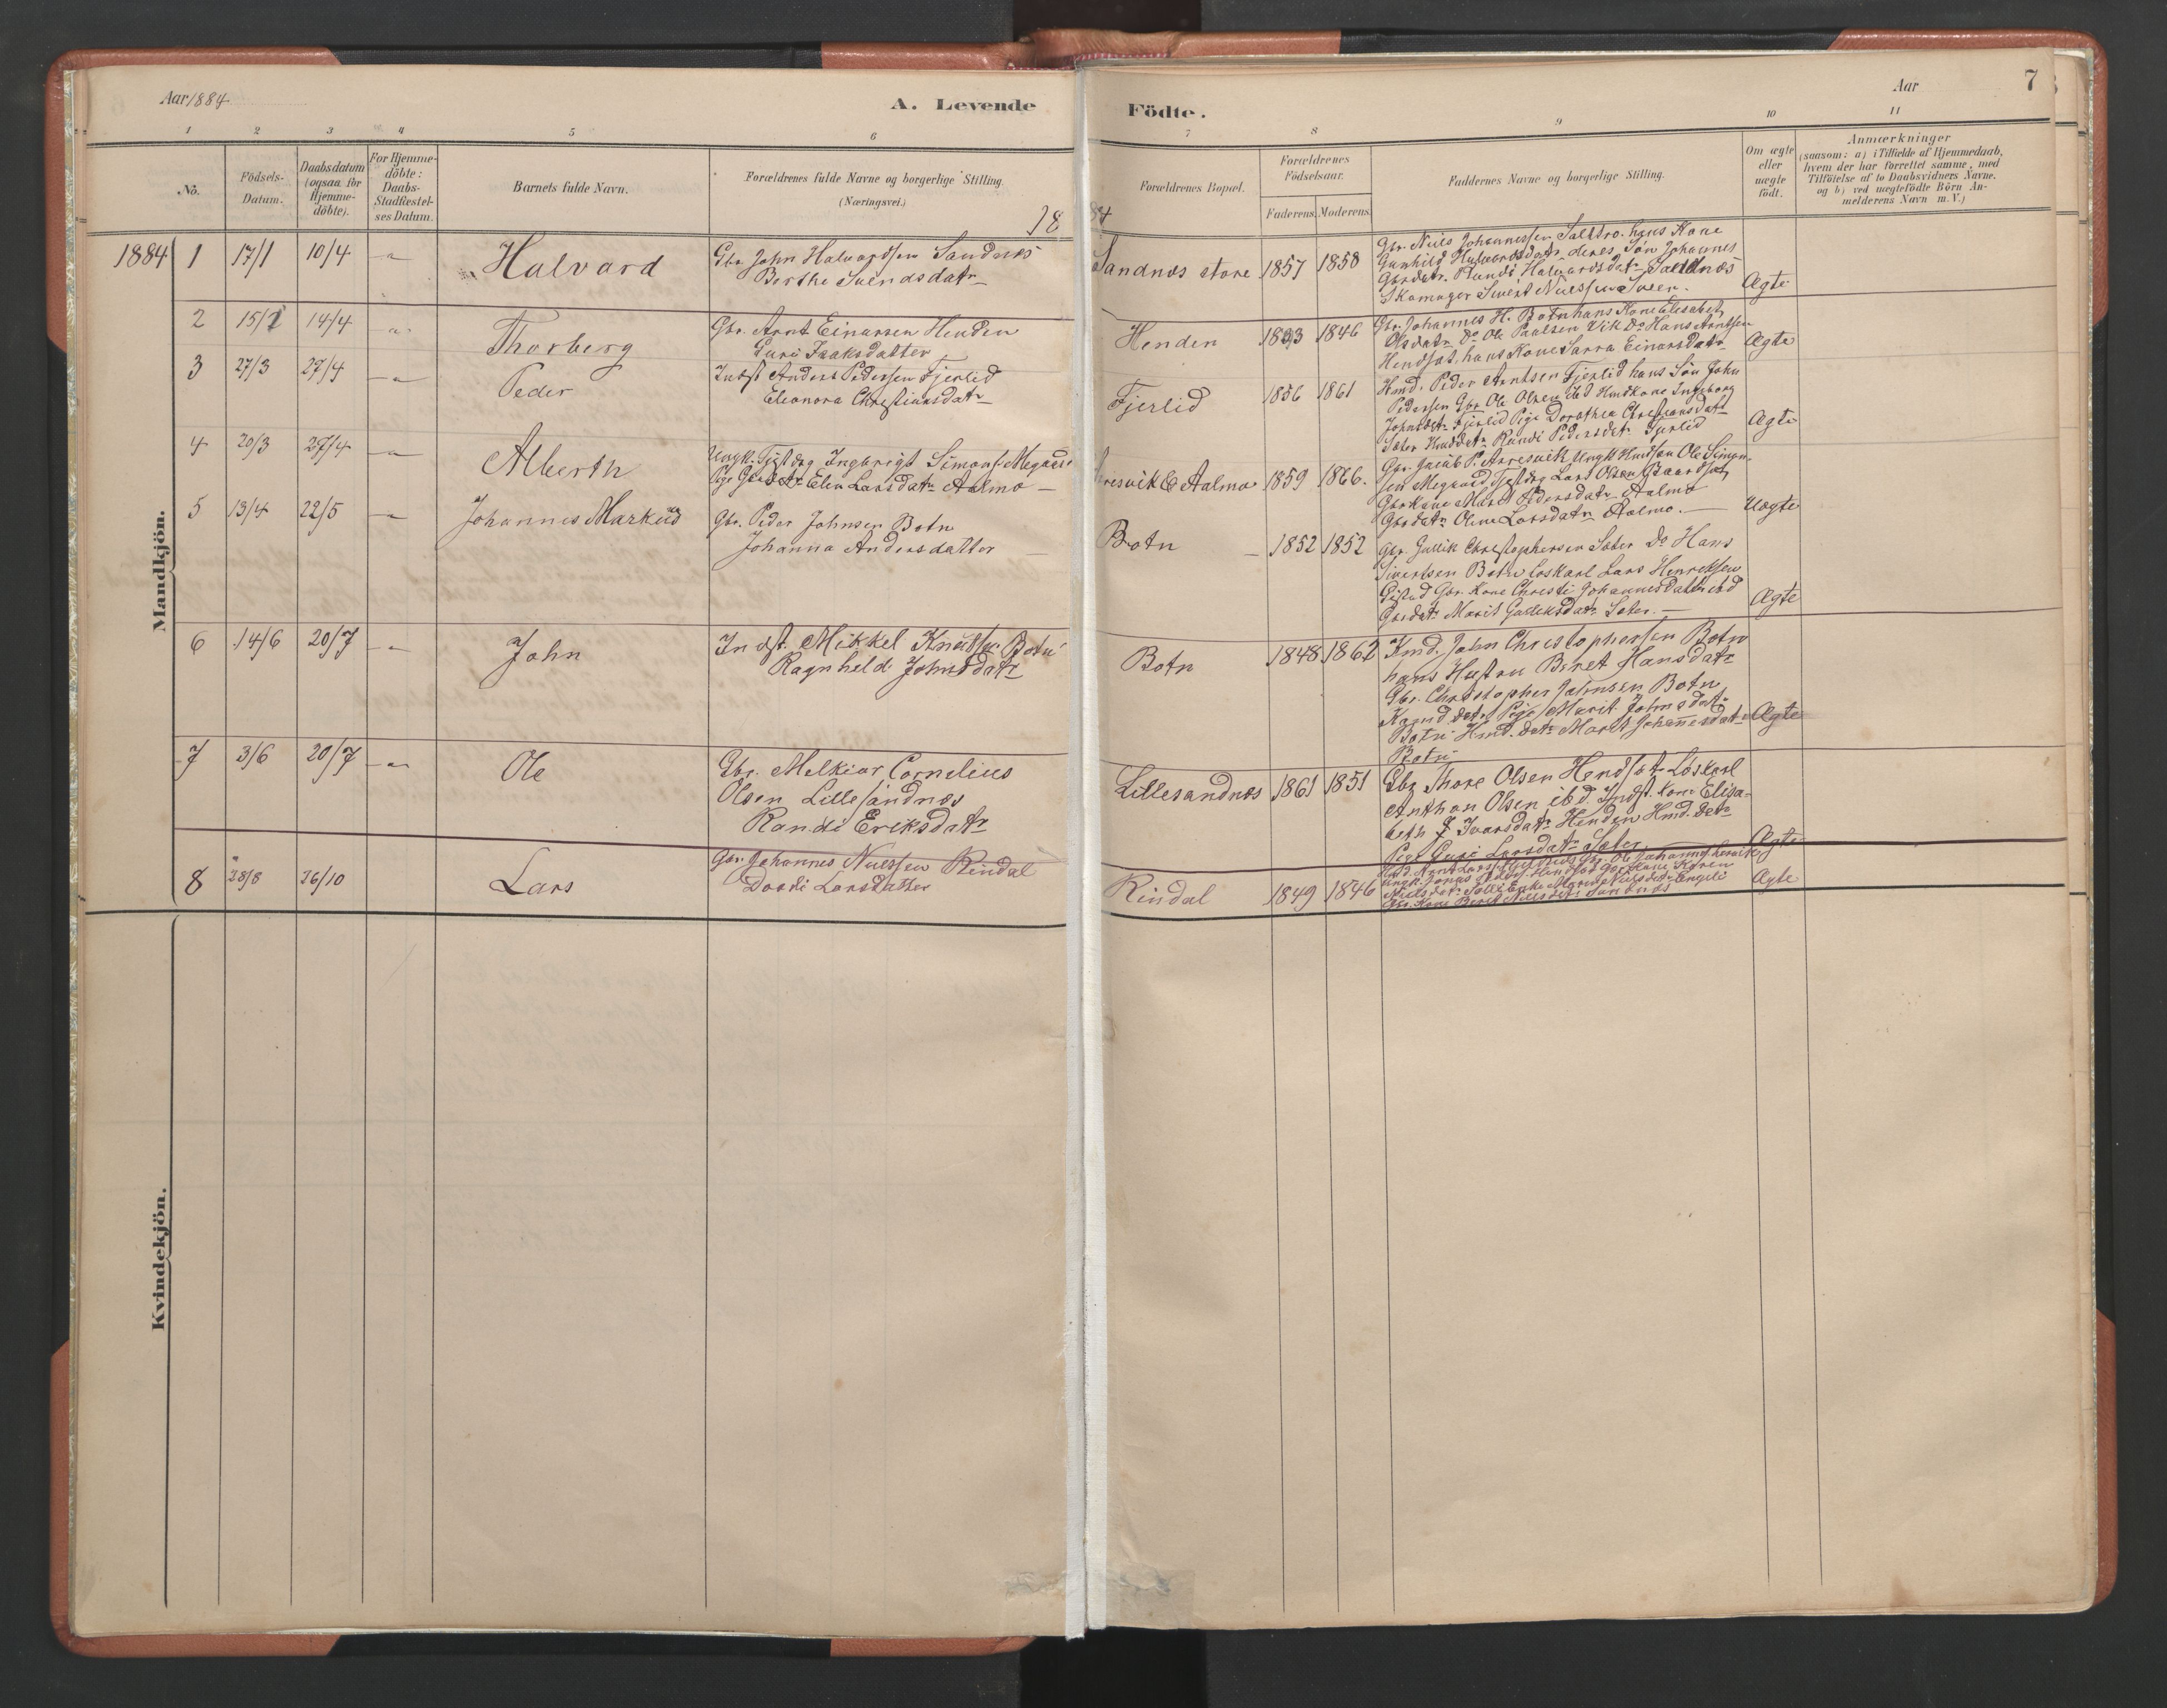 Aar 1884
A. Levende
Födte.
Aar
7
1 2 3 4 5 6 7 8 9 10 11
No.
Födsels-
Datum.
Daabsdatum
(ogsaa for
Hjemme-
döbte).
For Hjemme-
döbte:
Daabs-
Stadfæstel-
ses Datum.
Barnets fulde Navn.
Forældrenes fulde Navne og borgerlige Stilling.
(Næringsvei.)
Forældrenes Bopæl.
Forældrenes
Födselsaar.
Faderens. Moderens.
Faddernes Navne og borgerlige Stilling.
Om ægte
eller
uægte
födt.
Anmærkninger
(saasom: a) i Tilfælde af Hjemmedaab,
hvem der har forrettet samme, med
Tilföielse af to Daabsvidners Navne.
og b) ved uægtefödte Börn An-
melderens Navn m. V.)
18
84
Mandkjön.
1884 1 17/1 10/4 Halvard
Gbr. John Halvardsen Sandnæs
Berthe Svendsdatr
Sandnæs store 1857 1858
Gbr. Niels Johannessen Saltrø. hans Kone
Gunhild Halvardsdatr deres Søn Johannes
Gbrdatr. Randi Halvardsdatr Sandnæs
Skomager Sivert Nielssen Sveen.
Ægte
2 15/2 14/4 Thorberg
Gbr. Arnt Einarsen Henden
Guri Isaksdatter
Henden 1846
Gbr. Johannes H. Botn hans Kone Elisabet
Olsdatr Do Ole Paalsen Vik Do Hans Arntsen
Hendsæt, hans Kone Sarra Einarsdatr
Ægte
3 27/3 27/4 Peder
Indst Anders Pedersen Fjerlid
Eleonora Christiansdatr
Fjerlid 1856 1861
Hmd. Peder Arntsen Fjerlid hans Søn John
Pedersen Gbr Ole Olsen ibd Hmdkone Ingeborg
Johnsdatr Fjerlid Pige Dorothea Christiansdatr
Sæter Hmdsdatr Randi Pedersdatr Fjerlid
Ægte
4 20/3 27/4 Alberth
Ungk. Tjstdrg Ingebrigt Simons. Megaard
Pige Gbrdatr Elen Larsdatr Aalmo
Arresvik & Aalmo 1859 1866.
Gbr. Jacob P. Arresvik Ungk Hmdsøn Ole Simon-
sen Megaard Tjstdrg Lars Olsen Baardset
Gbrkone Marit Pedersdatr Aalmo
Gbrdatr Oline Larsdatr Aalmo.
Uægte
5 13/4 22/5 Johannes Markus
Gbr. Peder Johnsen Botn
Johanna Andersdatter
Botn 1852 1852
Gbr Gullik Christophersen Sæter Do Hans
Sivertsen Botn Løskarl Lars Henriksen
Gistad Gbr. Kone Christi Johannesdatter ibd
Gbrdatr Marit Gulliksdatr Sæter.
Ægte
6 14/6 20/7 John
Indst. Mikkel Knutsen Botn
Ragnhild Johnsdatr
Botn 1848 1862
Kmd. John Christophersen Botn
hans Hustru Beret Hansdatr
Gbr. Christopher Johnsen Botn
Kaarmd.datr Pige Marit Johnsdatr
Botn Hmd.datr Marit Johannesdatr
Botn
Ægte
7 3/6 20/7 Ole
Gbr. Melkior Cornelius
Olsen Lillesandnæs
Randi Eriksdatr
Lillesandnæs 1861 1851
Gbr Thore Olsen Hendsæt Løskarl
Anthon Olsen ibd. Indst. Kone Elisa-
beth Ivarsdatr Henden Hmd. datr
Pige Guri Larsdatr Sæter
Ægte
8 28/8 26/10 Lars
Gbr. Johannes Nielssen Rindal
Dordi Larsdatter
Rindal 1849 1846
Gbr. Kone Beret Nielsdatr Sandnæs
Ægte
Kvindekjön.